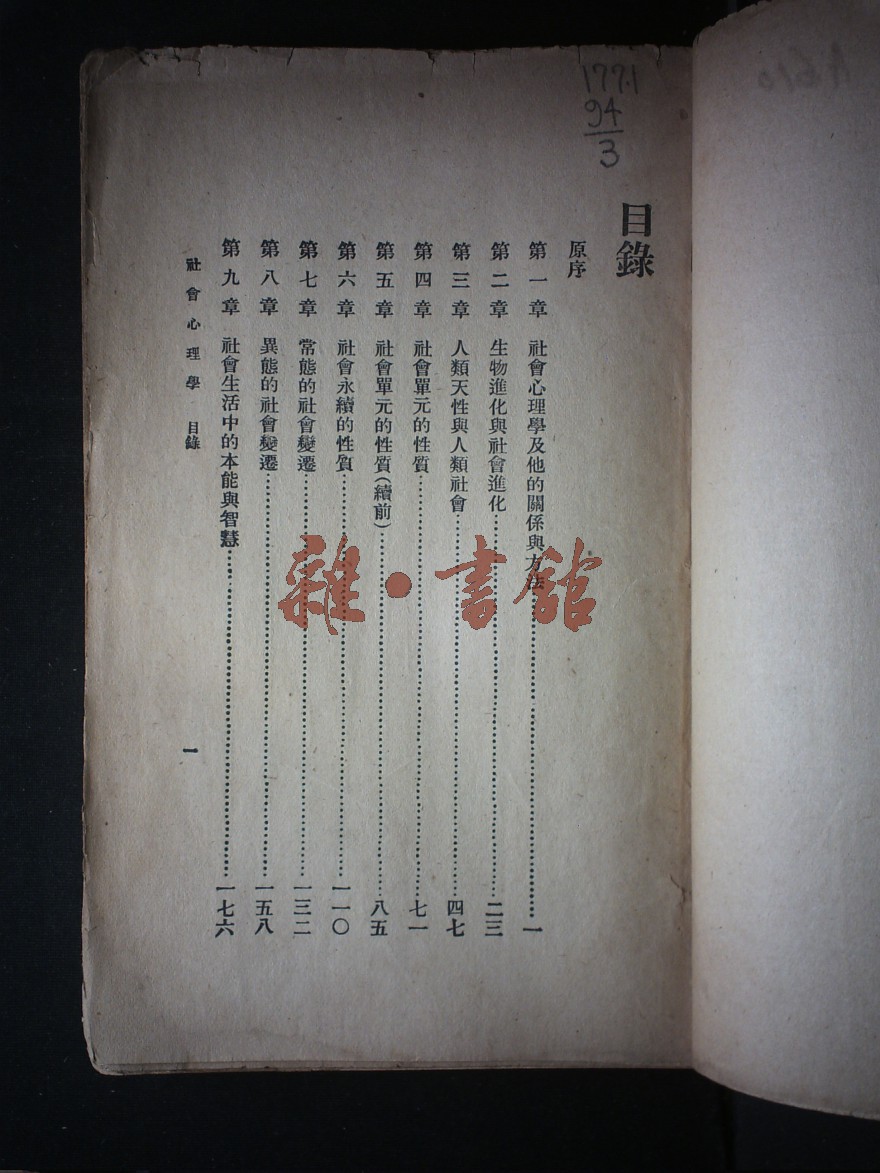 177.1
94
3
目錄
原序
第一章 社會心理學及他的關係與方法……一
第二章 生物進化與社會進化……二三
第三章 人類天性與人類社會……四七
第四章 社會單元的性質……七一
第五章 社會單元的性質(續前)……八五
第六章 社會永續的性質……一一〇
第七章 常態的社會變遷……一三二
第八章 異態的社會變遷……一五八
第九章 社會生活中的本能與智慧……一七六
社會心理學 目錄 一
雜·書館